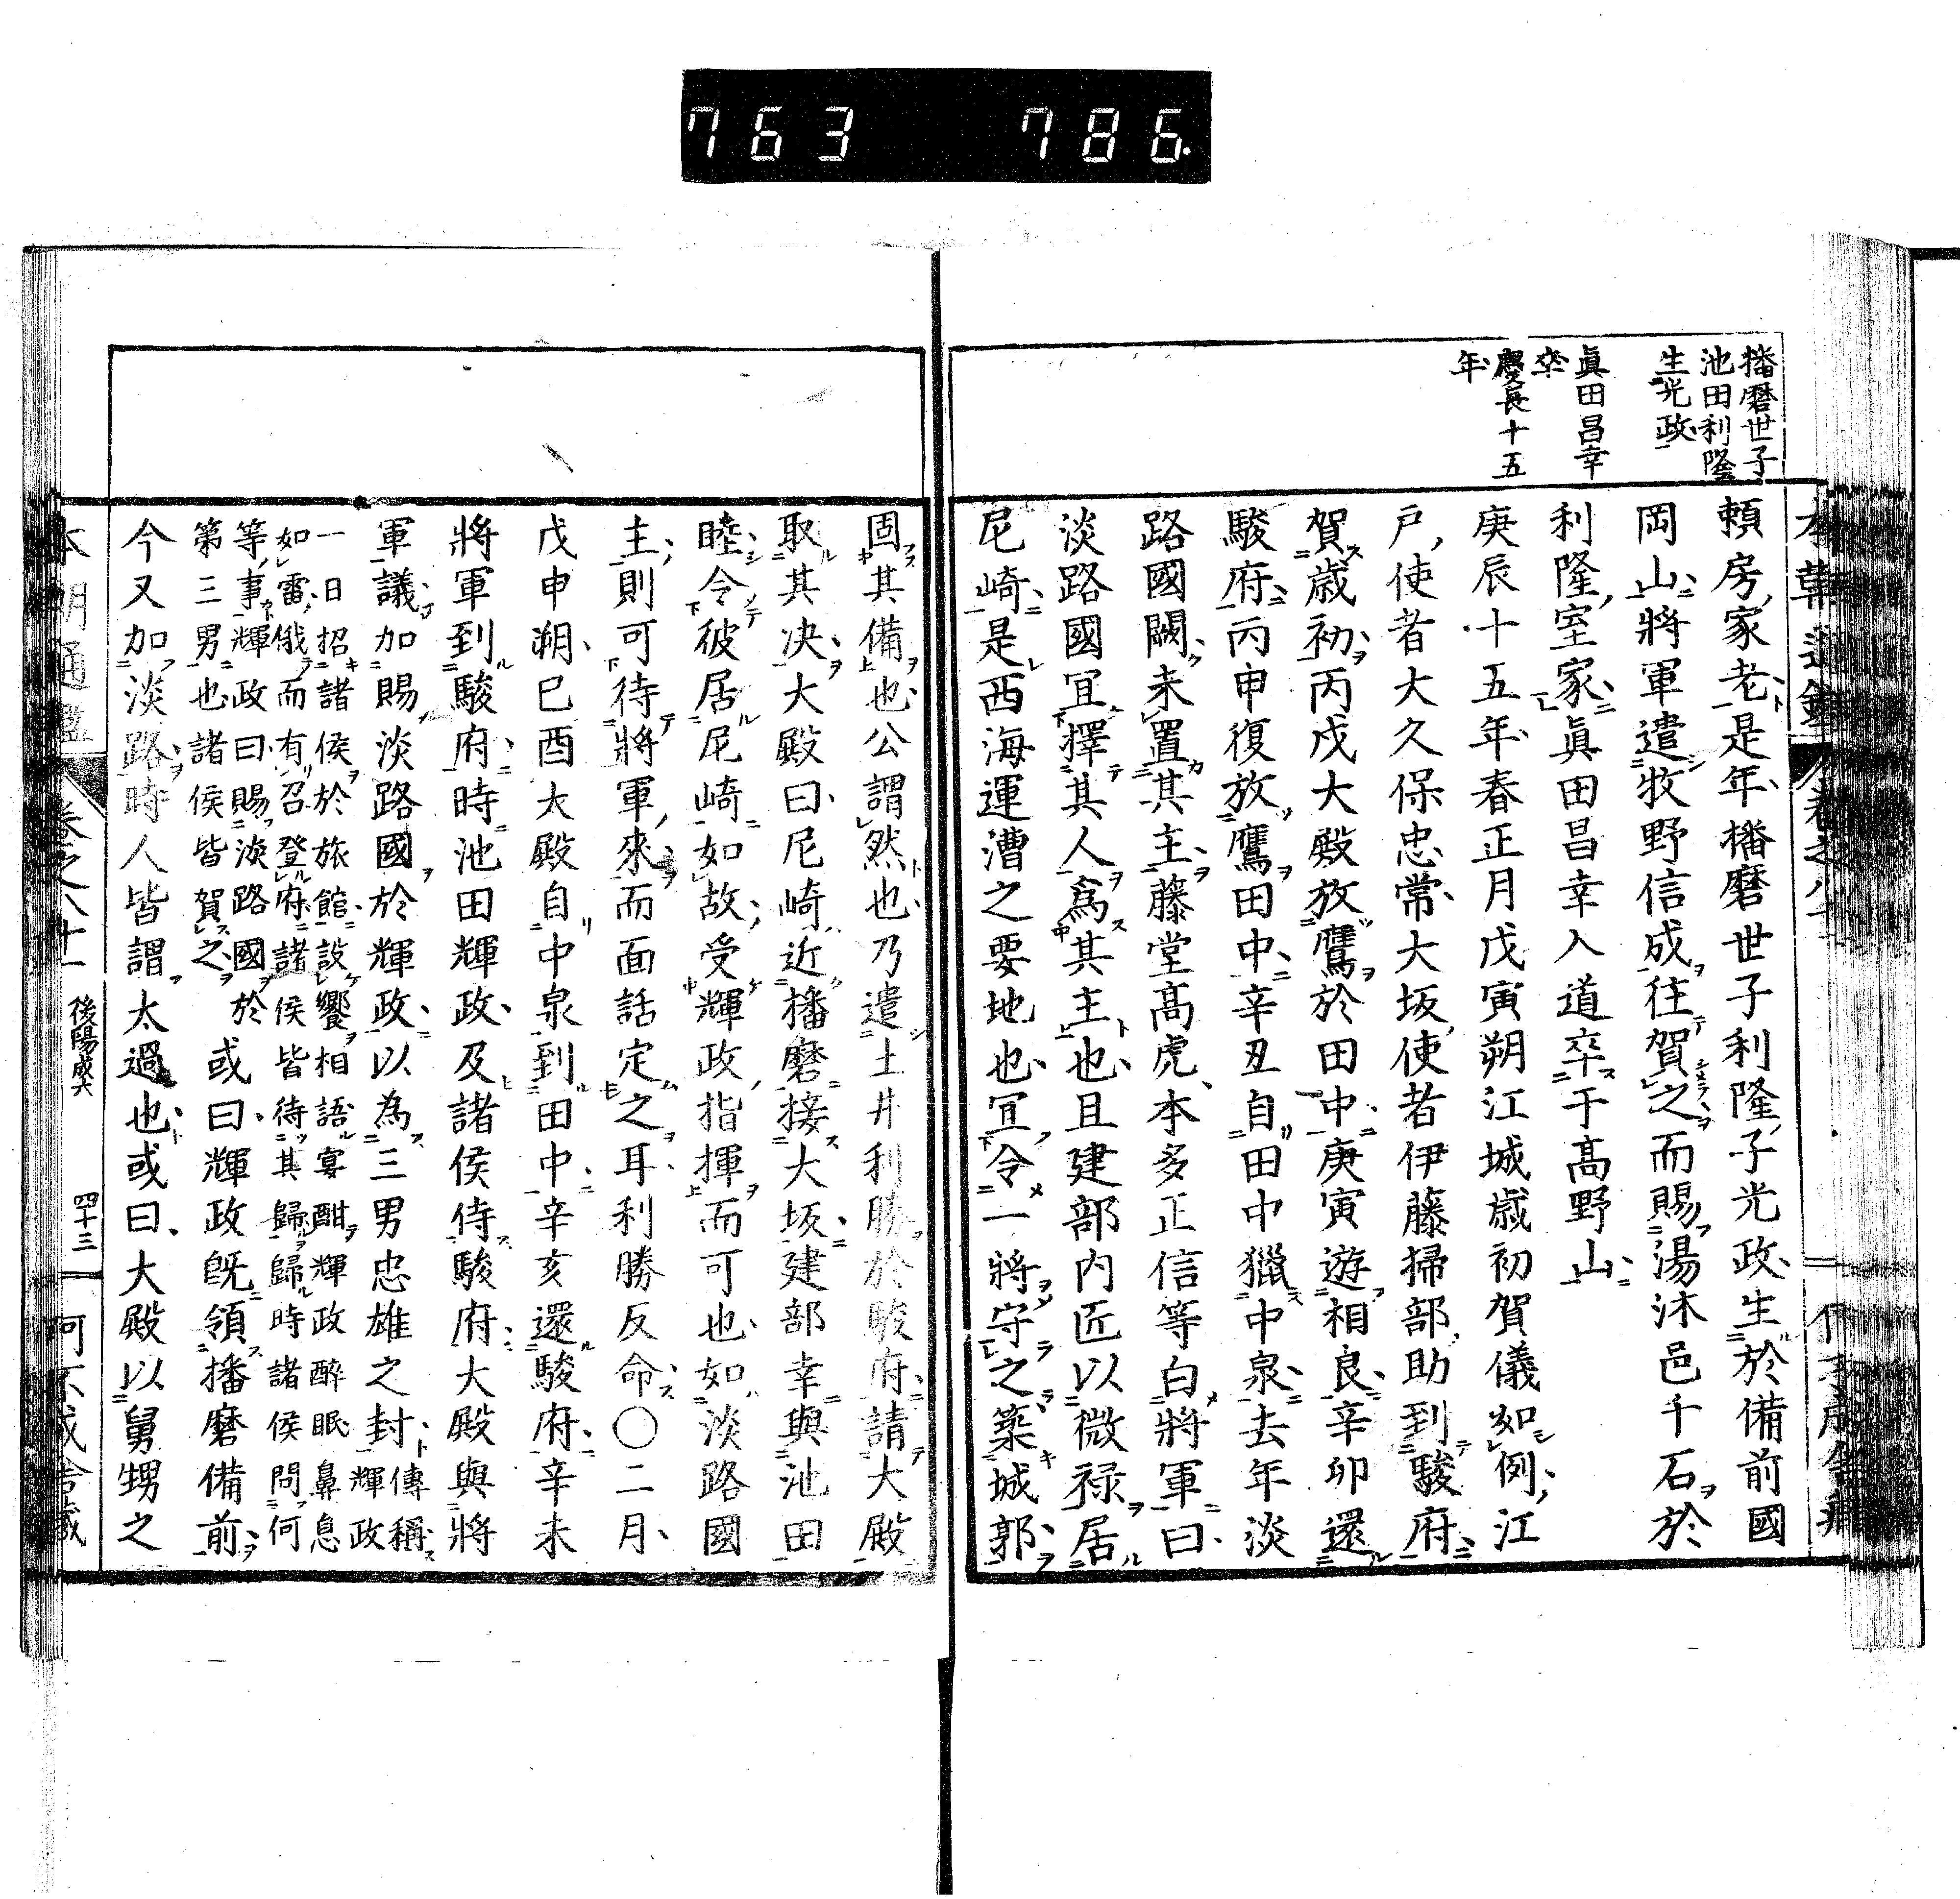 763 786
播磨世子
池田利隆
生光政
眞田昌幸
卒
慶長十五
年
賴房家老是年播磨世子利隆子光政生於備前國
岡山將軍遣牧野信成往賀之而賜湯沐邑千石於
利隆室家眞田昌幸入道卒于髙野山
庚辰十五年春正月戊寅朔江城歳初賀儀如例江
戸使者大久保忠常大坂使者伊藤掃部助到駿府
賀歳初丙戌大殿放鷹於田中庚寅遊相良辛卯還
駿府丙申復放鷹田中辛丑自田中獵中泉去年淡
路國闕未置其主藤堂髙虎本多正信等白將軍曰
淡路國冝擇其人爲其主也且建部内匠以微禄居
尼崎是西海運漕之要地也冝令一將守之築城郭
固其備也公謂然也乃遣土井利勝於駿府請大殿
取其决大殿曰尼崎近播磨接大坂建部幸與池田
睦令彼居尼崎如故受輝政指揮而可也如淡路國
主則可待將軍來而面話定之耳利勝反命〇二月
戊申朔己酉大殿自中泉到田中辛亥還駿府辛未
將軍到駿府時池田輝政及諸侯侍駿府大殿與將
軍議加賜淡路國於輝政以為三男忠雄之封傳稱
輝政
一日招諸侯於旅館設饗相語宴酣輝政醉眠鼻息
如雷俄而有召登府諸侯皆待其歸歸時諸侯問何
等事輝政曰賜淡路國於
第三男也諸侯皆賀之
或曰輝政旣領播磨備前
今又加淡路時人皆謂太過也或曰大殿以舅甥之
本朝通鑑
卷之八十一
後陽成六
四十三